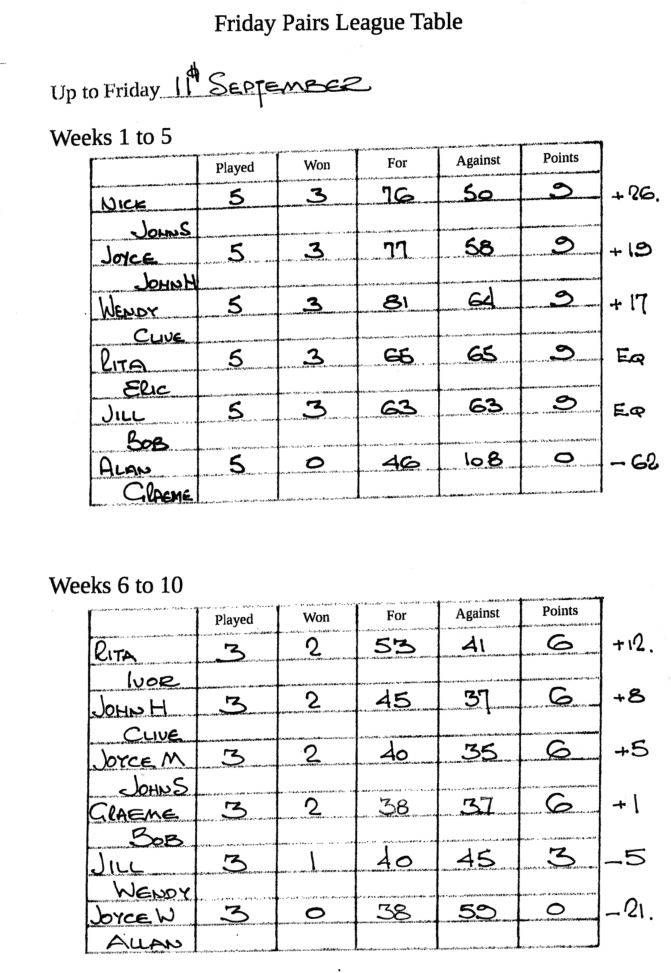 Friday Pairs League Table
Up to Friday 11th SEPTEMBER
Weeks 1 to 5
Played Won For Against Points
NICK 5 3 76 50 9 +26.
JOHN S
JOYCE 5 3 77 58 9 +19
JOHN H
WENDY 5 3 81 64 9 +17
CLIVE
RITA 5 3 65 65 9 EQ
ERIC
JILL 5 3 63 63 9 EQ
BOB
ALAN 5 0 46 108 0 -62
GRAEME
Weeks 6 to 10
Played Won For Against Points
RITA 3 2 53 41 6 +12.
IVOR
JOHN H 3 2 45 37 6 +8
CLIVE
JOYCE M 3 2 40 35 6 +5
JOHN S
GRAEME 3 2 38 37 6 +1
BOB
JILL 3 1 40 45 3 -5
WENDY
JOYCE W 3 0 38 59 0 -21.
ALLAN